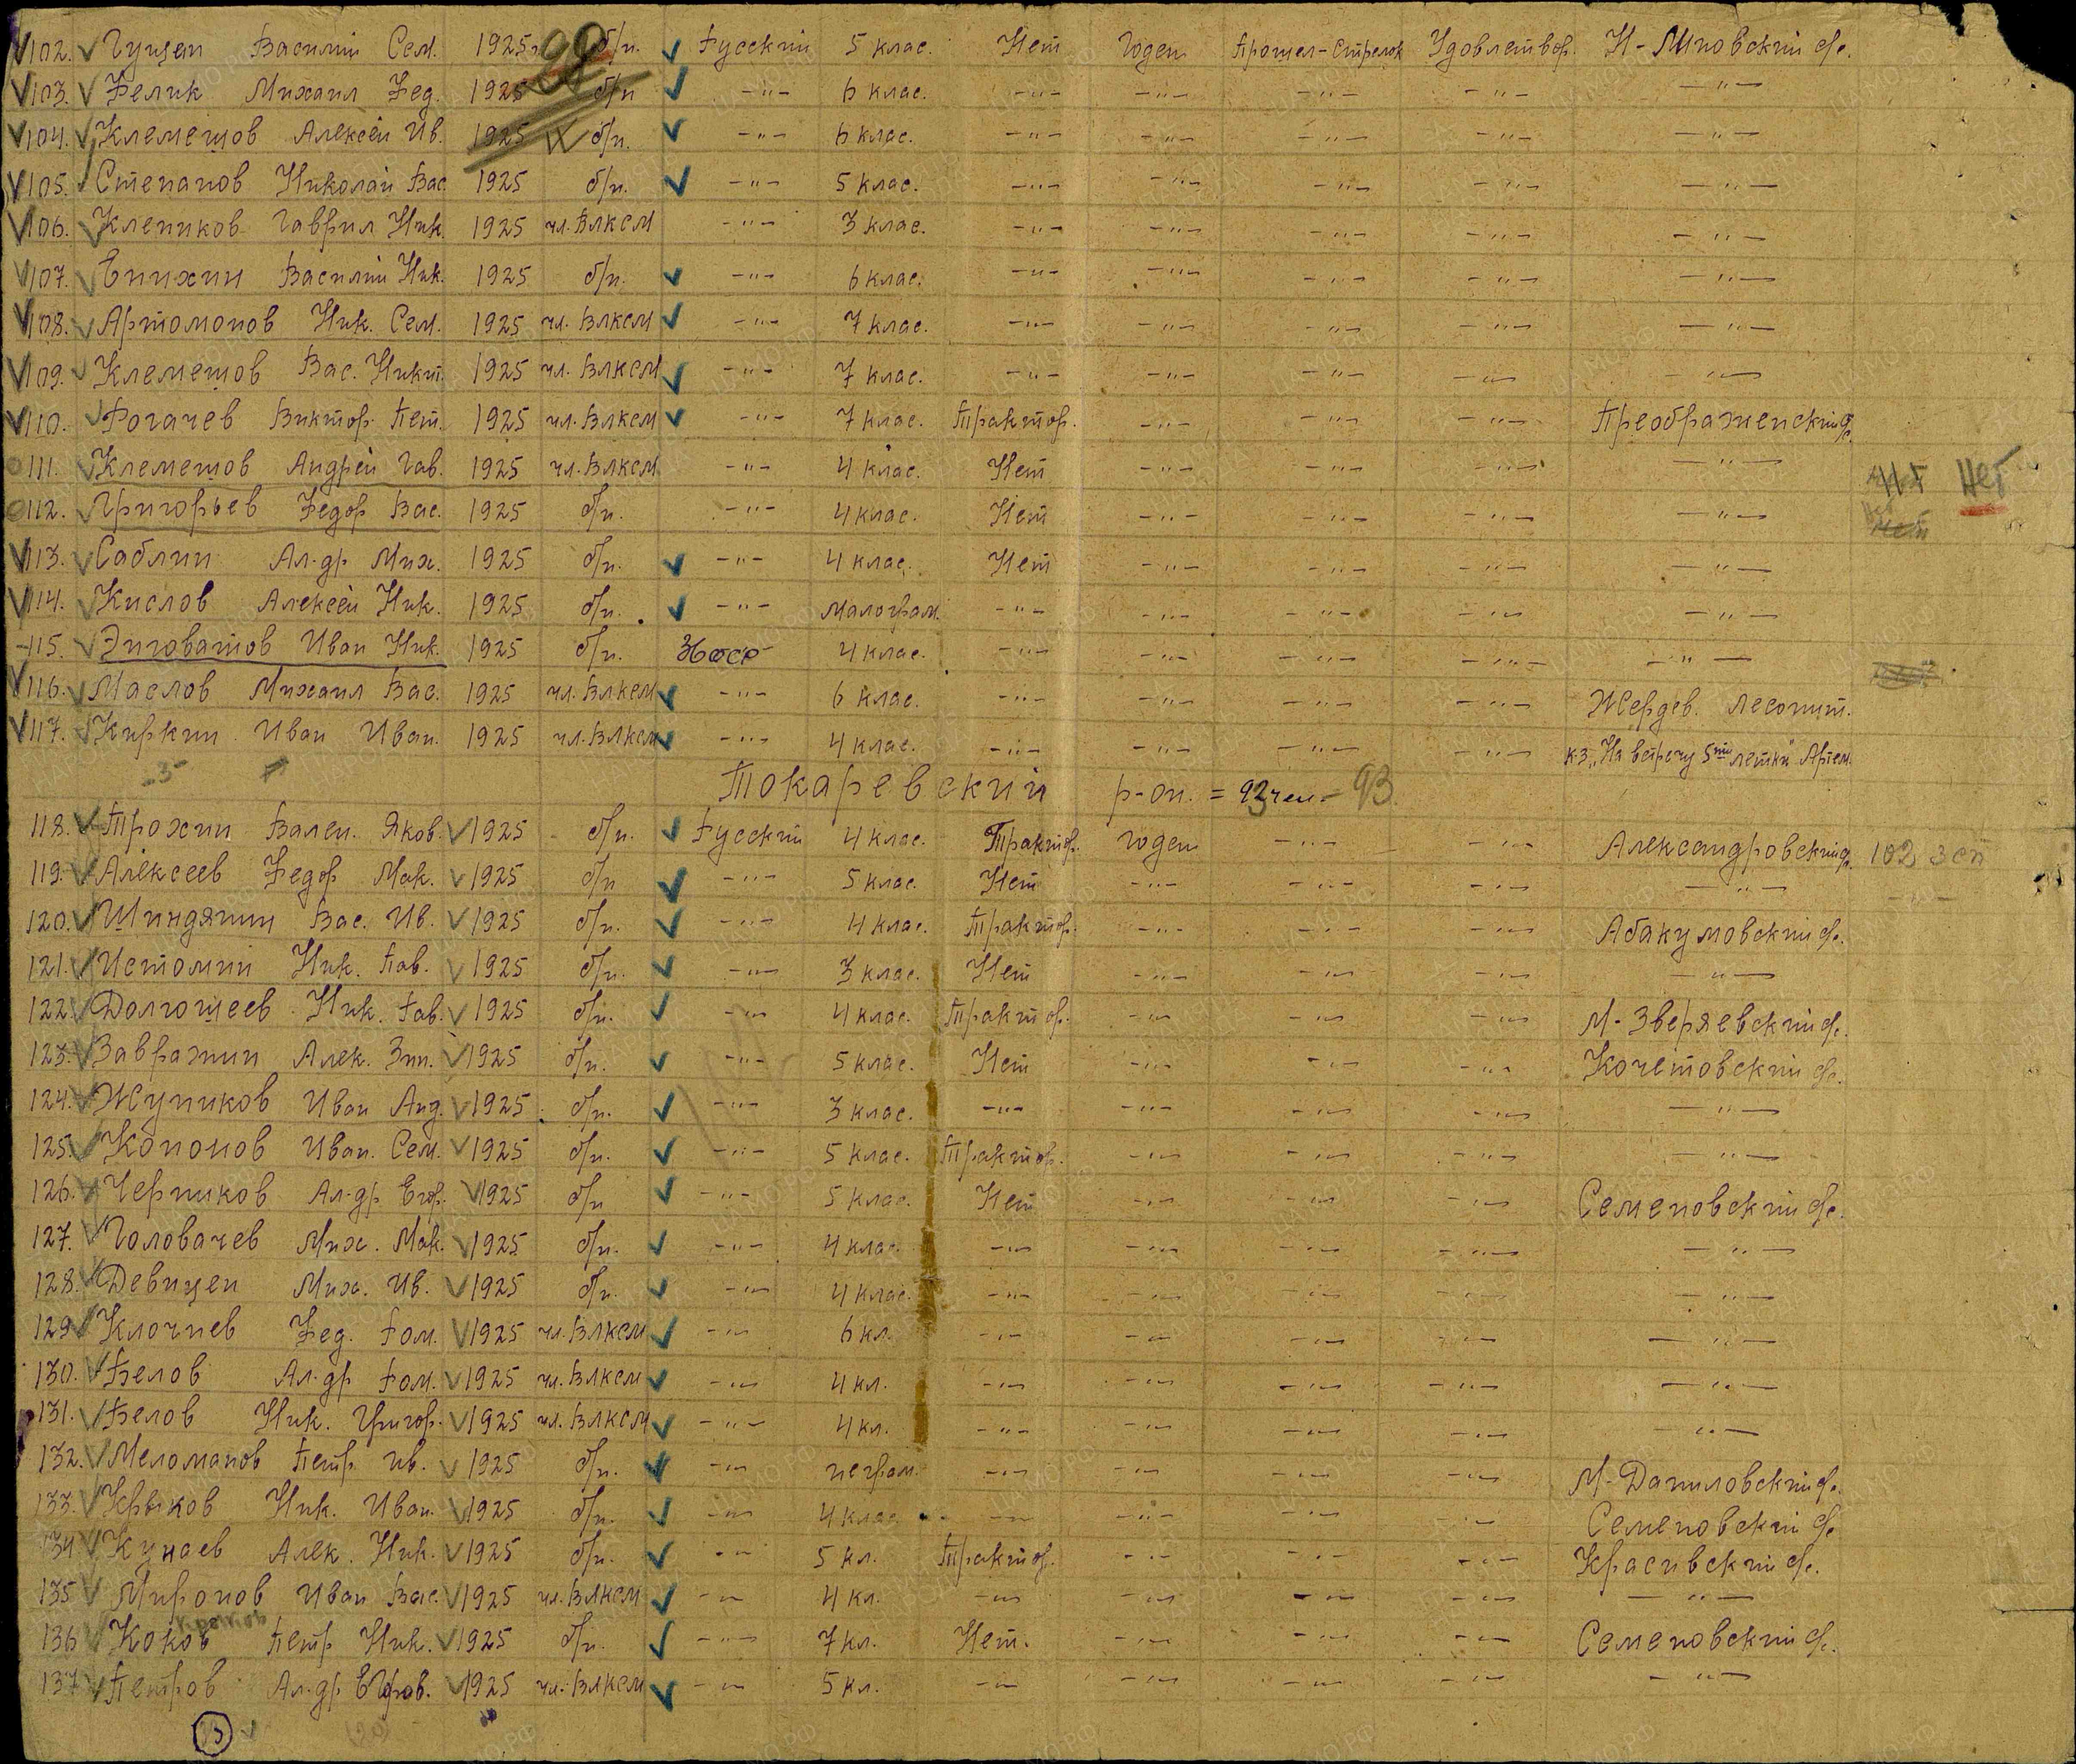 102. Гущен Василий Сем. 1925 б/п. Русский 5 клас. Нет Годен Прошел-Стрелок Удовлетвор. Н-Миновский с/с.
103. Белик Михаил Фед. 1925 б/п -"- 6 клас. -"- -"- -"- -"- -"-
104. Клемешов Алексей Ив. 1925 б/п. -"- 6 клас. -"- -"- -"- -"- -"-
105. Степанов Николай Вас 1925 б/п. -"- 5 клас. -"- -"- -"- -"- -"-
106. Клепиков Гаврил Ник. 1925 чл. Влксм -"- 3 клас. -"- -"- -"- -"- -"-
107. Енихин Василий Ник. 1925 б/п. -"- 6 клас. -"- -"- -"- -"- -"-
108. Артомонов Ник. Сем. 1925 чл. Влксм -"- 7 клас. -"- -"- -"- -"- -"-
109. Клемешов Вас. Никит. 1925 чл. Влксм -"- 7 клас. -"- -"- -"- -"- -"-
110. Рогачев Виктор. Пет. 1925 чл. Влксм -"- 7 клас. Трактор. -"- -"- -"- Преображенский с/с.
111. Клемешов Андрей Гав. 1925 чл. Влксм -"- 4 клас. Нет -"- -"- -"- -"- Нет
112. Григорьев Федор Вас. 1925 б/п. -"- 4 клас. Нет -"- -"- -"- -"-
113. Саблин Ал-др Мих. 1925 б/п. -"- 4 клас. Нет -"- -"- -"- -"-
114. Кислов Алексей Ник. 1925 б/п. -"- малограм. -"- -"- -"- -"- -"-
115. Энговатов Иван Ник. 1925 б/п. 4 клас. -"- -"- -"- -"- -"-
116. Маслов Михаил Вас. 1925 чл. Влксм -"- 6 клас. -"- -"- -"- -"- Жердев. Лесопит.
117. Киркин Иван Иван. 1925 чл. Влксм -"- 4 клас. -"- -"- -"- -"- к-з "На встречу 5тилетки" Артем.
-3-
Токаревский р-он. = 92 чел. - 93.
118. Трохин Вален. Яков. 1925 б/п. Русский 4 клас. Трактор. годен -"- -"- Александровский с/с. 102 зсп
119. Алексеев Федор Мак. 1925 б/п -"- 5 клас. Нет -"- -"- -"- -"- -"-
120. Шиндяпин Вас. Ив. 1925 б/п. -"- 4 клас. Трактор. -"- -"- -"- Абакумовский с/с.
121. Истомин Ник. Пав. 1925 б/п. -"- 3 клас. Нет -"- -"- -"- -"-
122. Долгошеев Ник. Гав. 1925 б/п. -"- 4 клас. Трактор. -"- -"- -"- М-Зверяевский с/с.
123. Завражин Алек. Зин. 1925 б/п. -"- 5 клас. Нет -"- -"- -"- Кочетовский с/с.
124. Жупиков Иван Анд. 1925 б/п. -"- 3 клас. -"- -"- -"- -"- -"-
125. Кононов Иван. Сем. 1925 б/п. -"- 5 клас. Трактор. -"- -"- -"- -"-
126. Черников Ал-др Егор. 1925 б/п -"- 5 клас. Нет -"- -"- -"- Семеновский с/с.
127. Головачев Мих. Мак. 1925 б/п. -"- 4 клас. -"- -"- -"- -"- -"-
128. Девицен Мих. Ив. 1925 б/п. -"- 4 клас. -"- -"- -"- -"- -"-
129 Клочнев Фед. Ром. 1925 чл. Влксм -"- 6 кл. -"- -"- -"- -"- -"-
130. Белов Ал-др Ром. 1925 чл. Влксм -"- 4 кл. -"- -"- -"- -"- -"-
131. Белов Ник. Григор. 1925 чл. Влксм -"- 4 кл. -"- -"- -"- -"- -"-
132. Меломанов Петр Ив. 1925 б/п. -"- неграм. -"- -"- -"- -"- М-Даниловский с/с.
133. Крюков Ник. Иван. 1925 б/п. -"- 4 клас. -"- -"- -"- -"- Семеновский с/с
134 Кунаев Алек. Ник. 1925 б/п. -"- 5 кл. Трактор. -"- -"- -"- Красивский с/с.
135 Миронов Иван Вас. 1925 чл. Влксм -"- 4 кл. -"- -"- -"- -"- -"-
136 Коков Петр Ник. 1925 б/п. -"- 7 кл. Нет. -"- -"- -"- Семеновский с/с.
137 Петров Ал-др Егоров. 1925 чл. Влксм -"- 5 кл. -"- -"- -"- -"- -"-